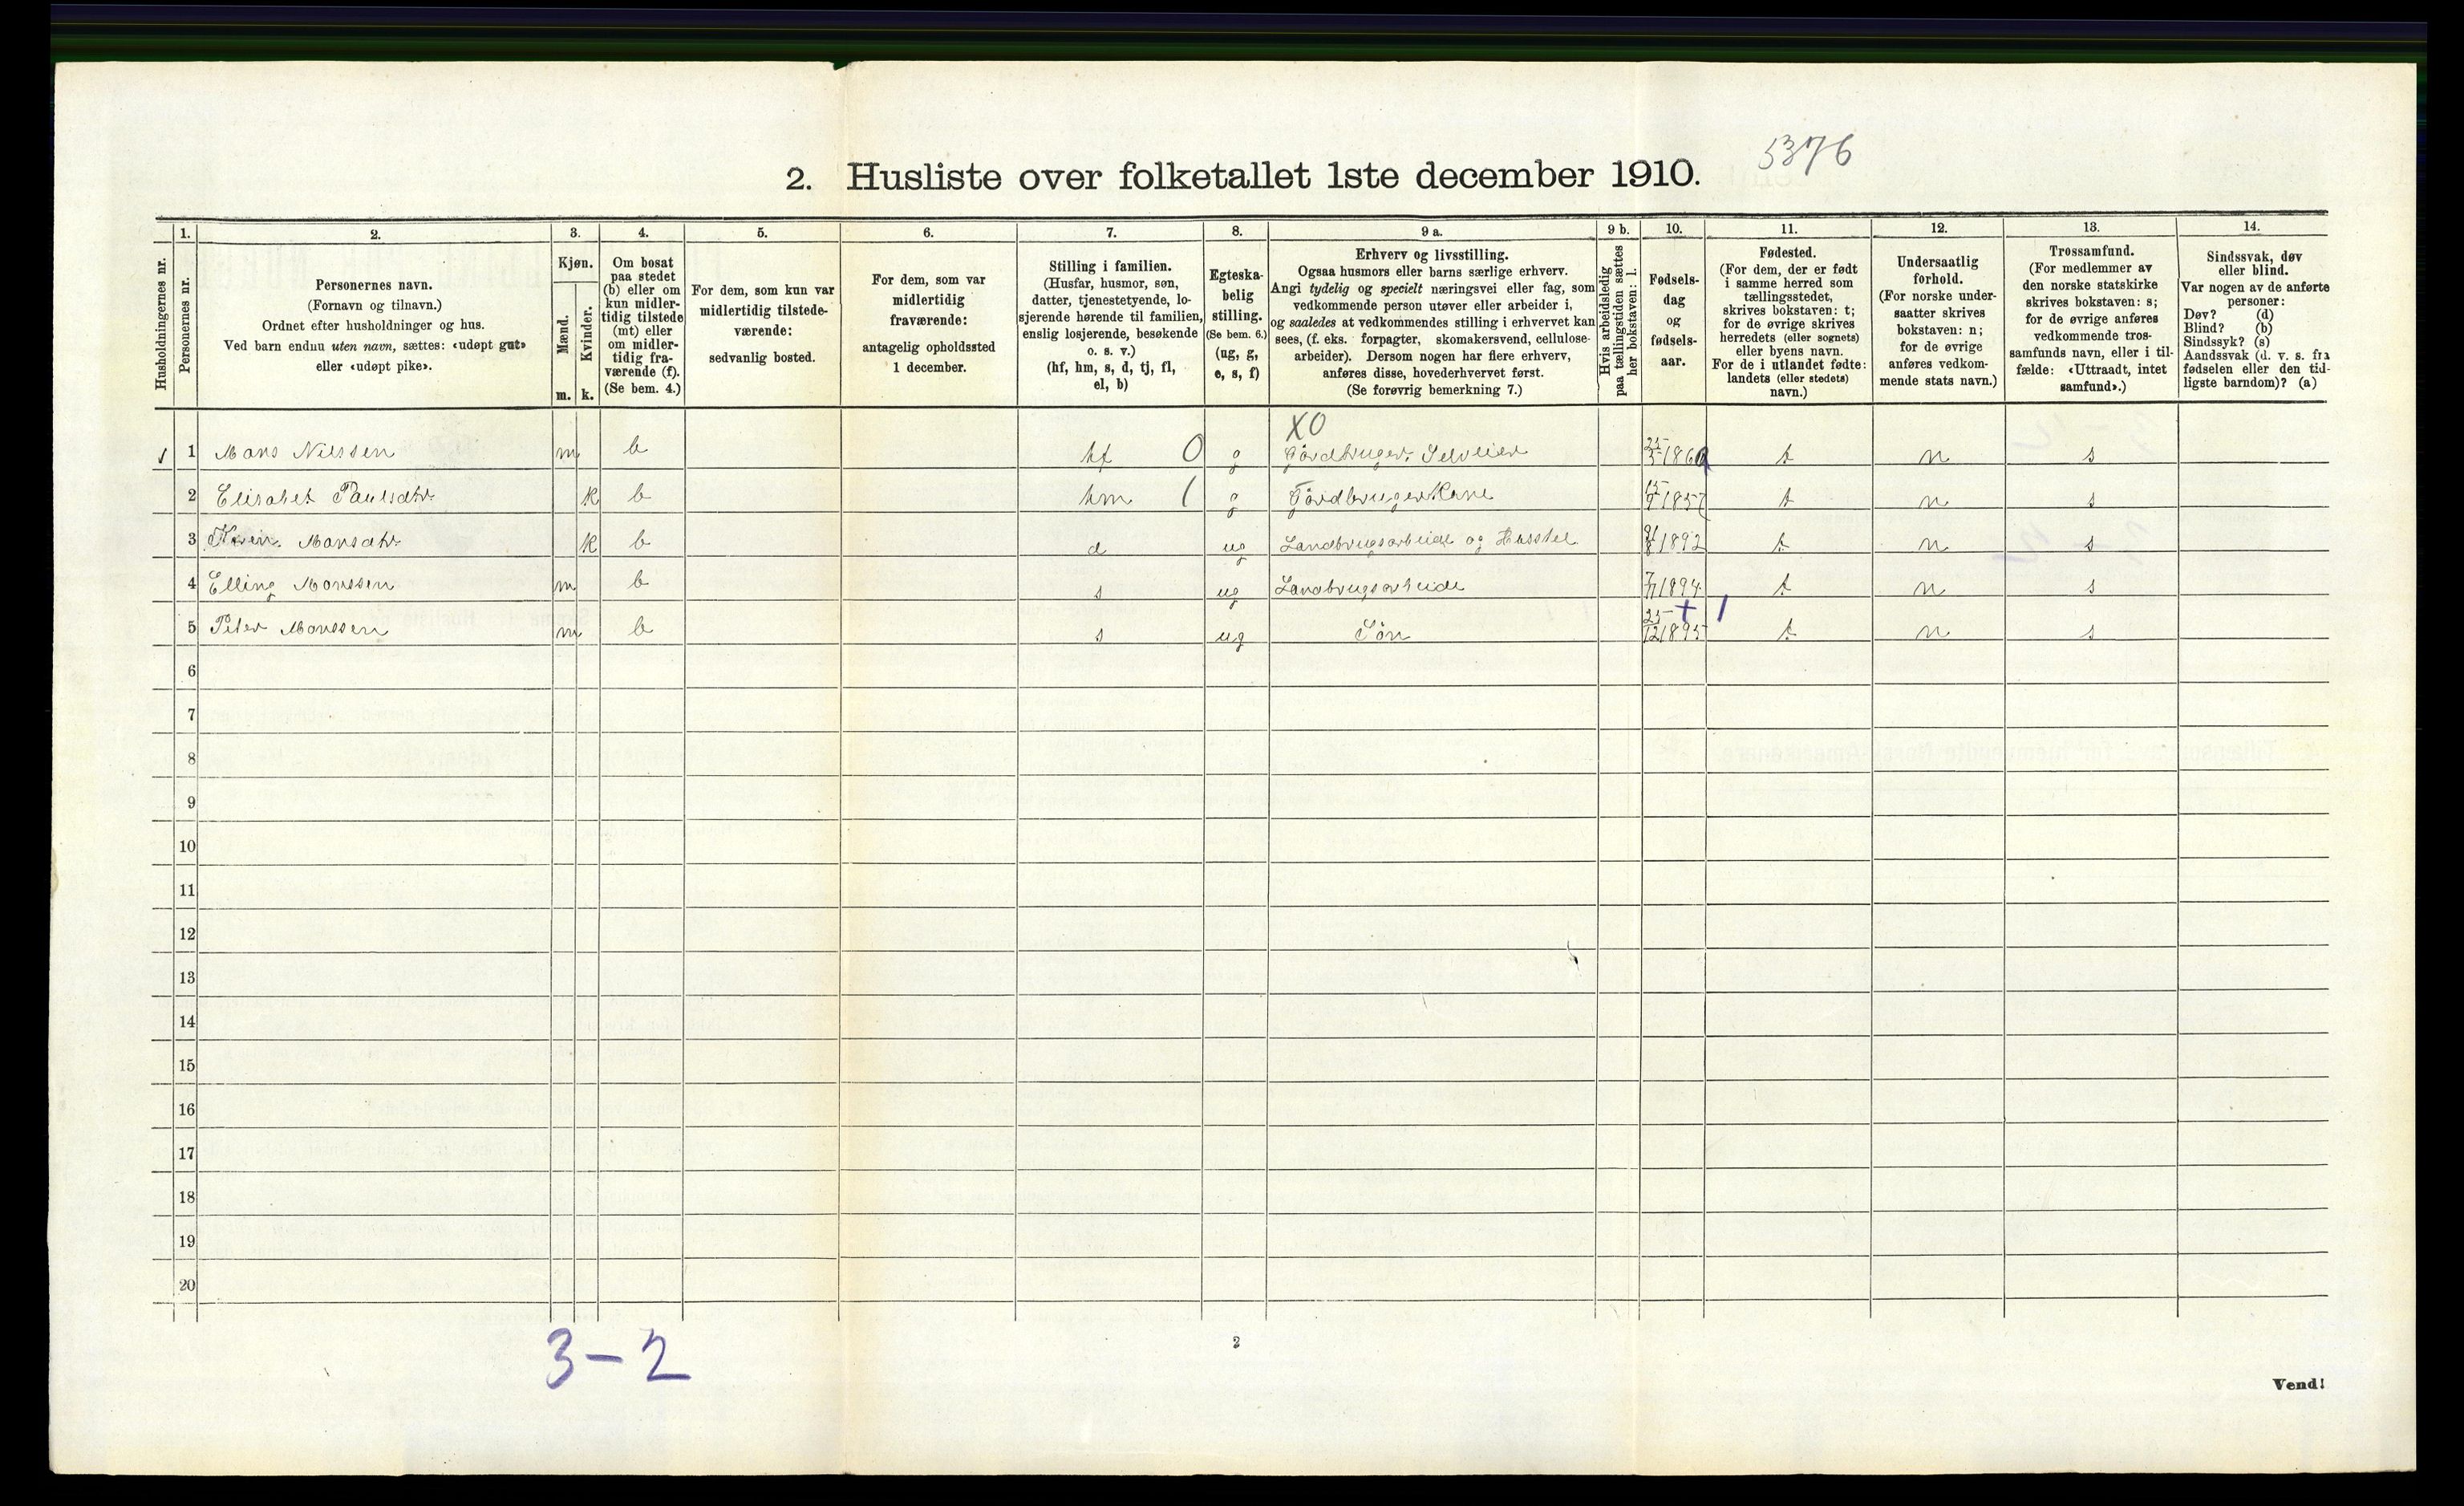 5376
2. Husliste over folketallet 1ste december 1910.
1. 2. 3. 4. 5. 6. 7. 8. 9 a. 9 b. 10. 11. 12. 13. 14.
Husholdningernes nr.
Personernes nr.
Personernes navn.
(Fornavn og tilnavn.)
Ordnet efter husholdninger og hus.
Ved barn endnu uten navn, sættes: «udøpt gut»
eller «udøpt pike».
Kjøn.
Mænd.
Kvinder.
m. k.
Om bosat
paa stedet
(b) eller om
kun midler-
tidig tilstede
(mt) eller
om midler-
tidig fra-
værende (f).
(Se bem. 4.)
For dem, som kun var
midlertidig tilstede-
værende:
sedvanlig bosted.
For dem, som var
midlertidig
fraværende:
antagelig opholdssted
1 december.
Stilling i familien.
(Husfar, husmor, søn,
datter, tjenestetyende, lo-
sjerende hørende til familien,
enslig losjerende, besøkende
o. s. v.)
(hf, hm, s, d, tj, fl,
el, b)
Egteska-
belig
stilling.
(Se bem. 6.)
(ug, g,
e, s, f)
Erhverv og livsstilling.
Ogsaa husmors eller barns særlige erhverv.
Angi tydelig og specielt næringsvei eller fag, som
vedkommende person utøver eller arbeider i,
og saaledes at vedkommendes stilling i erhvervet kan
sees, (f. eks. forpagter, skomakersvend, cellulose-
arbeider). Dersom nogen har flere erhverv,
anføres disse, hovederhvervet først.
(Se forøvrig bemerkning 7.)
Hvis arbeidsledig
paa tællingstiden sættes
her bokstaven: l.
Fødsels-
dag
og
fødsels-
aar.
Fødested.
(For dem, der er født
i samme herred som
tællingsstedet,
skrives bokstaven: t;
for de øvrige skrives
herredets (eller sognets)
eller byens navn.
For de i utlandet fødte:
landets (eller stedets)
navn.)
Undersaatlig
forhold.
(For norske under-
saatter skrives
bokstaven: n;
for de øvrige
anføres vedkom-
mende stats navn.)
Trossamfund.
(For medlemmer av
den norske statskirke
skrives bokstaven: s;
for de øvrige anføres
vedkommende tros-
samfunds navn, eller i til-
fælde: «Uttraadt, intet
samfund».)
Sindssvak, døv
eller blind.
Var nogen av de anførte
personer:
Døv? (d)
Blind? (b)
Sindssyk? (s)
Aandssvak (d. v. s. fra
fødselen eller den tid-
ligste barndom)? (a)
XO
1 1 Mons Nilssen m b hf O g Gårdbruger, Selveier t n s
2 Elisabet Paulsdtr k b hm ( g Gårdbruger Kone 15/9 1857 t n s
3 Monsdtr k b d ug Landbrugsarbeide og Husstel 1892 t n s
4 Elling Monssen m b s ug Landbrugsarbeide 1894 t n s
+ 1
5 Peter Monssen m b s ug Sön 25/12 1895 t n s
6
7
8
9
10
11
12
13
14
15
16
17
18
19
20
3-2
2
Vend!